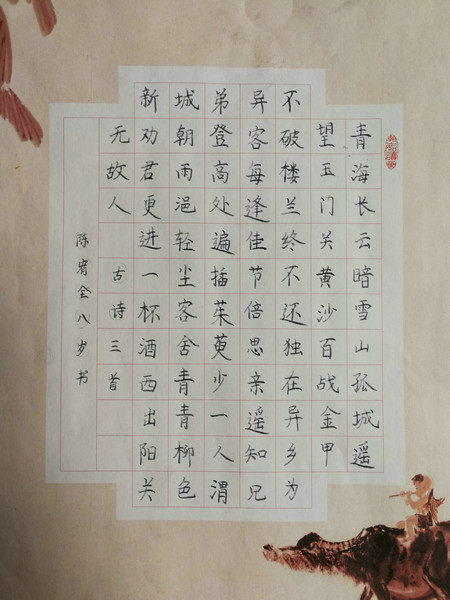 青海长云暗雪山孤城遥
望玉门关黄沙百战金甲
不破楼兰终不还独在异乡为
异客每逢佳节倍思亲遥知兄
弟登高处遍插茱萸少一人渭
城朝雨浥轻尘客舍青青柳色
新劝君更进一杯酒西出阳关
无故人 古诗三首
陈宥全八岁书